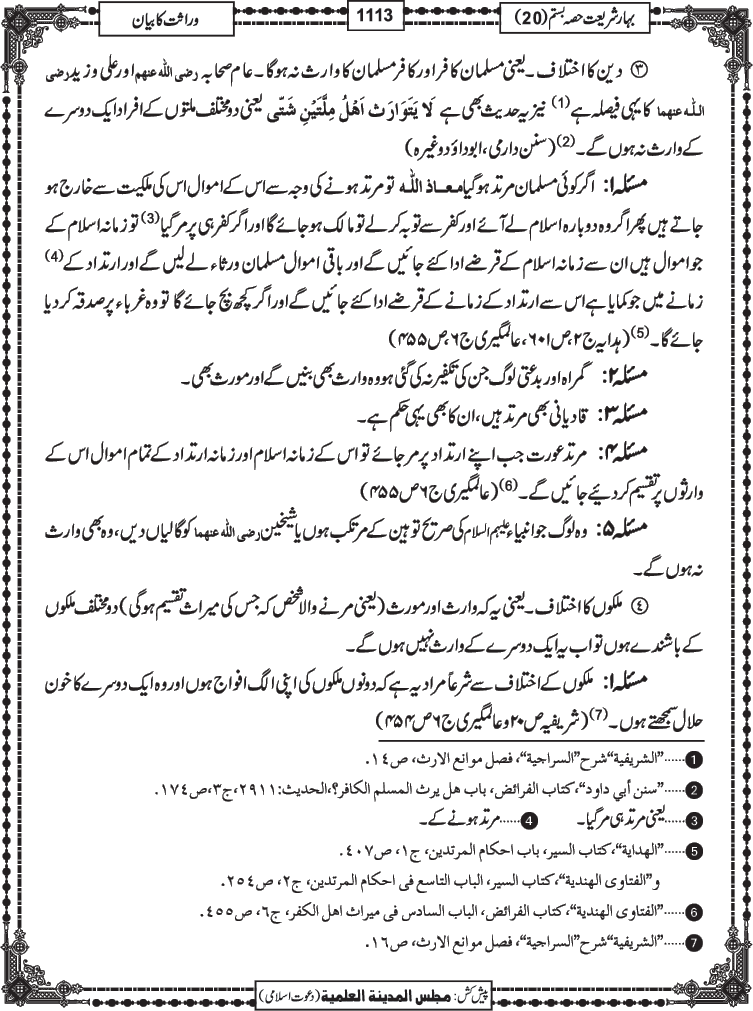 بہارِشریعت حصہ بستم (20)
1113
وراثت کا بیان
③ دین کا اختلاف۔ یعنی مسلمان کافر اور کافر مسلمان کا وارث نہ ہوگا۔ عام صحابہ رضی اللہ عنہم اور علی و زید رضی
اللہ عنہما کا یہی فیصلہ ہے(1) نیز یہ حدیث بھی ہے لَا یَتَوَارَثُ اَھْلُ مِلَّتَیْنِ شَتّٰی یعنی دو مختلف ملتوں کے افراد ایک دوسرے
کے وارث نہ ہوں گے۔(2) (سنن دارمی، ابوداؤد وغیرہ)
مسئلہ ۱: اگر کوئی مسلمان مرتد ہوگیا معاذ اللہ تو مرتد ہونے کی وجہ سے اس کے اموال اس کی ملکیت سے خارج ہو
جاتے ہیں پھر اگر وہ دوبارہ اسلام لے آئے اور کفر سے توبہ کرلے تو مالک ہو جائے گا اور اگر کفر ہی پر مر گیا(3) تو زمانہ اسلام کے
جو اموال ہیں ان سے زمانہ اسلام کے قرضے ادا کئے جائیں گے اور باقی اموال مسلمان ورثاء لے لیں گے اور ارتداد کے(4)
زمانے میں جو کمایا ہے اس سے ارتداد کے زمانے کے قرضے ادا کئے جائیں گے اور اگر کچھ بچ جائے گا تو وہ غرباء پر صدقہ کر دیا
جائے گا۔(5) (ہدایہ ج۲، ص۶۰۱، عالمگیری ج۶، ص۴۵۵)
مسئلہ ۲: گمراہ اور بدعتی لوگ جن کی تکفیر نہ کی گئی ہو وہ وارث بھی بنیں گے اور مورث بھی۔
مسئلہ ۳: قادیانی بھی مرتد ہیں، ان کا بھی یہی حکم ہے۔
مسئلہ ۴: مرتد عورت جب اپنے ارتداد پر مر جائے تو اس کے زمانہ اسلام اور زمانہ ارتداد کے تمام اموال اس کے
وارثوں پر تقسیم کر دیئے جائیں گے۔(6) (عالمگیری ج۶ ص۴۵۵)
مسئلہ ۵: وہ لوگ جو انبیاء علیہم السلام کی صریح توہین کے مرتکب ہوں یا شیخین رضی اللہ عنہما کو گالیاں دیں، وہ بھی وارث
نہ ہوں گے۔
④ ملکوں کا اختلاف۔ یعنی یہ کہ وارث اور مورث (یعنی مرنے والا شخص کہ جس کی میراث تقسیم ہوگی) دو مختلف ملکوں
کے باشندے ہوں تو اب یہ ایک دوسرے کے وارث نہیں ہوں گے۔
مسئلہ ۱: ملکوں کے اختلاف سے شرعاً مراد یہ ہے کہ دونوں ملکوں کی اپنی الگ افواج ہوں اور وہ ایک دوسرے کا خون
حلال سمجھتے ہوں۔(7) (شریفیہ ص۲۰ و عالمگیری ج۶ ص۴۵۴)
1 ......”الشریفیة“ شرح ”السراجیة“، فصل موانع الارث، ص۱۴.
2 ......”سنن أبي داود“، کتاب الفرائض، باب ھل یرث المسلم الکافر؟، الحدیث: ۲۹۱۱، ج۳، ص۱۷۴.
3 ......یعنی مرتد ہی مر گیا۔ 4 ......مرتد ہونے کے۔
5 ......”الھدایة“، کتاب السیر، باب احکام المرتدین، ج۱، ص۴۰۷.
و”الفتاوی الھندیة“، کتاب السیر، الباب التاسع فی احکام المرتدین، ج۲، ص۲۵۴.
6 ......”الفتاوی الھندیة“، کتاب الفرائض، الباب السادس فی میراث اھل الکفر، ج۶، ص۴۵۵.
7 ......”الشریفیة“ شرح ”السراجیة“، فصل موانع الارث، ص۱۶.
پیش کش: مجلس المدینة العلمیة (دعوتِ اسلامی)